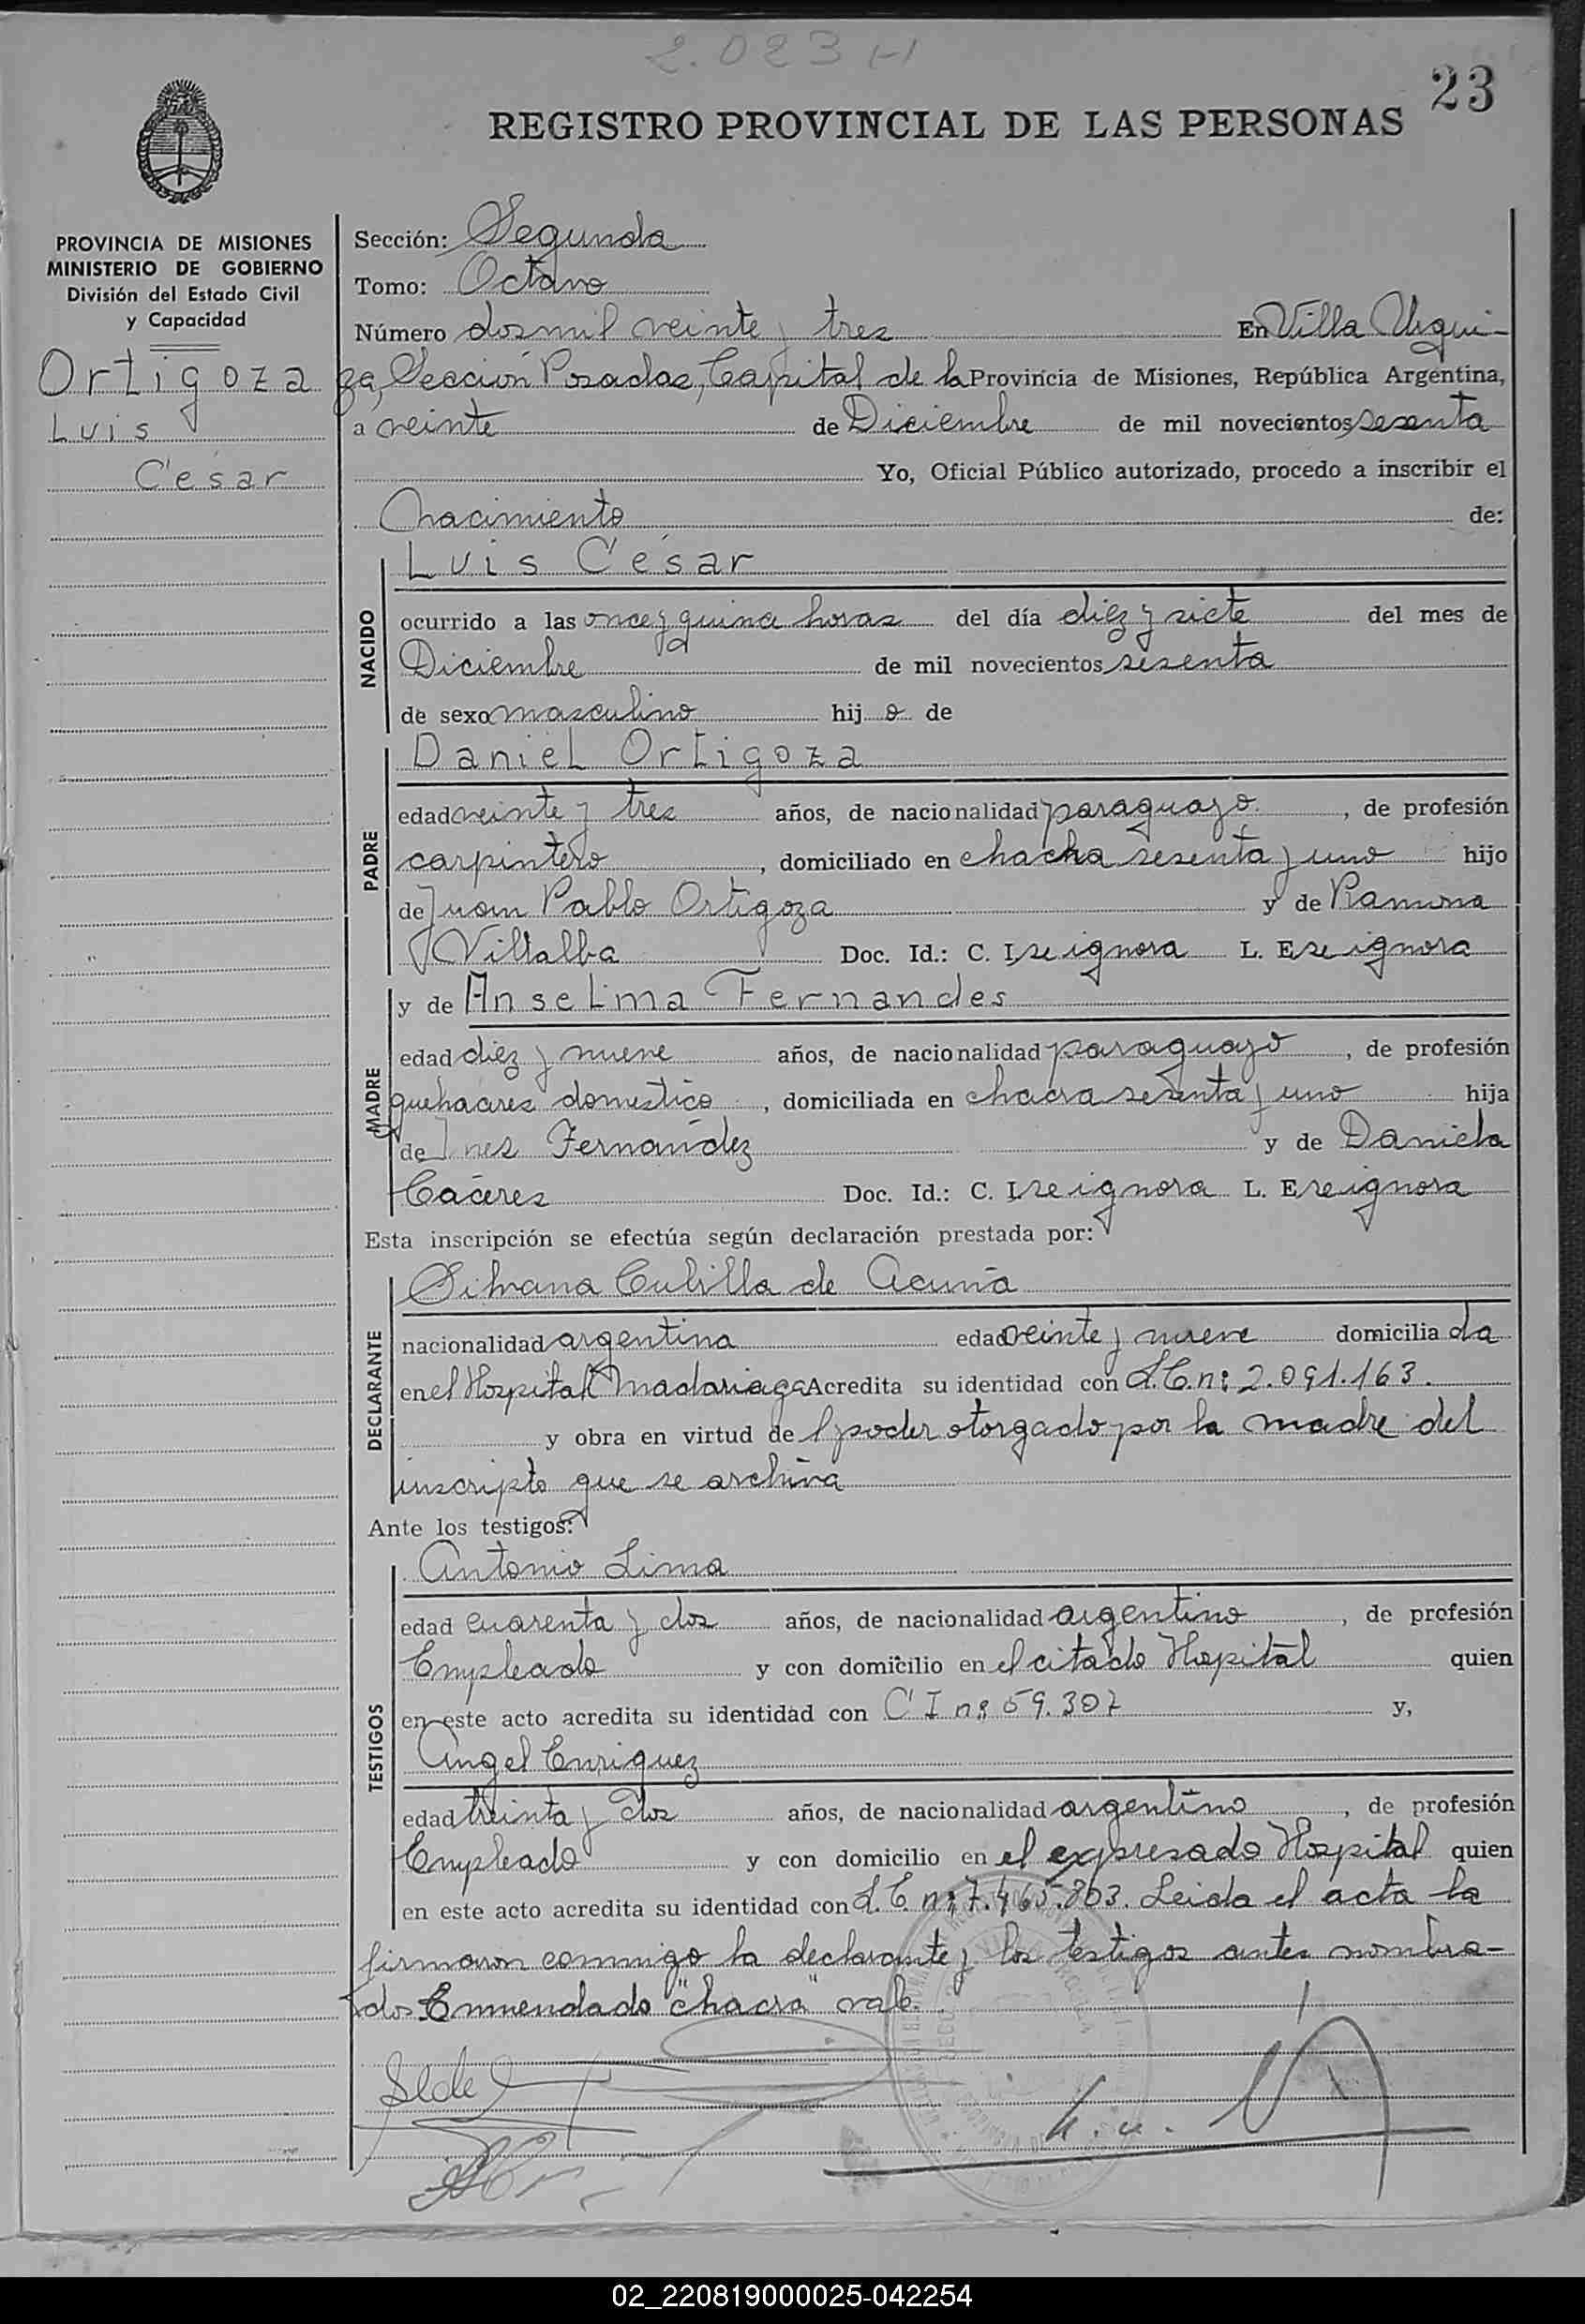 2.023 H
23
REGISTRO PROVINCIAL DE LAS PERSONAS
PROVINCIA DE MISIONES
MINISTERIO DE GOBIERNO
División del Estado Civil
y Capacidad
Ortigoza
Luis
César
Sección: Segunda
Tomo: Octavo
Número dos mil veinte y tres En Villa Urqui-
za, Sección Posadas, Capital de la Provincia de Misiones, República Argentina,
a veinte de Diciembre de mil novecientos sesenta
Yo, Oficial Público autorizado, procedo a inscribir el
Nacimiento de:
NACIDO
Luis César
ocurrido a las once y quince horas del día diez y siete del mes de
Diciembre de mil novecientos sesenta
de sexo masculino hij o de
PADRE
Daniel Ortigoza
edad veinte y tres años, de nacionalidad paraguayo, de profesión
carpintero, domiciliado en chacra sesenta y uno hijo
de Juan Pablo Ortigoza y de Ramona
Villalba Doc. Id.: C. I. se ignora L. E. se ignora
MADRE
y de Anselma Fernandes
edad diez y nueve años, de nacionalidad paraguayo, de profesión
quehaceres domestico, domiciliada en chacra sesenta y uno hija
de Ines Fernández y de Daniela
Cáceres Doc. Id.: C. I. se ignora L. E. se ignora
Esta inscripción se efectúa según declaración prestada por:
DECLARANTE
Silvana Cubilla de Acuña
nacionalidad argentina edad veinte y nueve domicilia da
en el Hospital Madariaga Acredita su identidad con L.C.n: 2.091.163.
y obra en virtud de l poder otorgado por la madre del
inscripto que se archiva
Ante los testigos:
TESTIGOS
Antonio Lima
edad cuarenta y dos años, de nacionalidad argentino, de profesión
Empleado y con domicilio en el citado Hospital quien
en este acto acredita su identidad con C I n: 59.307 y,
Angel Enriquez
edad treinta y dos años, de nacionalidad argentino, de profesión
Empleado y con domicilio en el expresado Hospital quien
en este acto acredita su identidad con L.E. n: 7.465.803. Leida el acta la
firmaron conmigo la declarante y los testigos antes nombra-
dos Enmendado "chacra" vale.
02_220819000025-042254